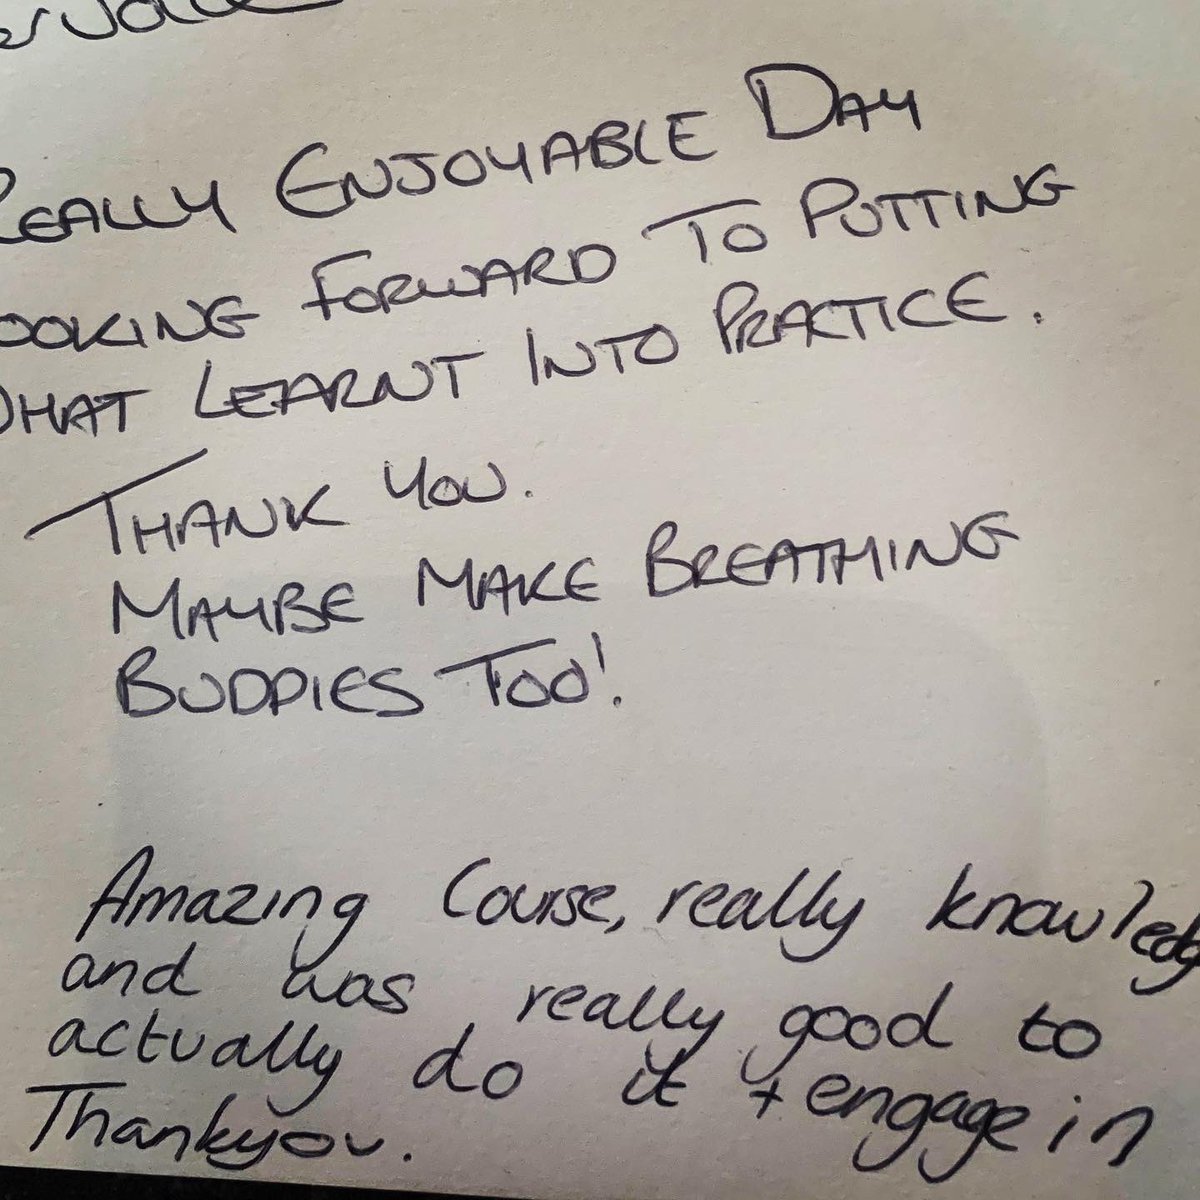 REALLY ENJOYABLE DAY
LOOKING FORWARD TO PUTTING
WHAT LEARNT INTO PRACTICE.
THANK YOU.
MAYBE MAKE BREATHING
BUDDIES TOO!
Amazing Course, really knowledg
and was really good to
actually do it + engage in
Thankyou.